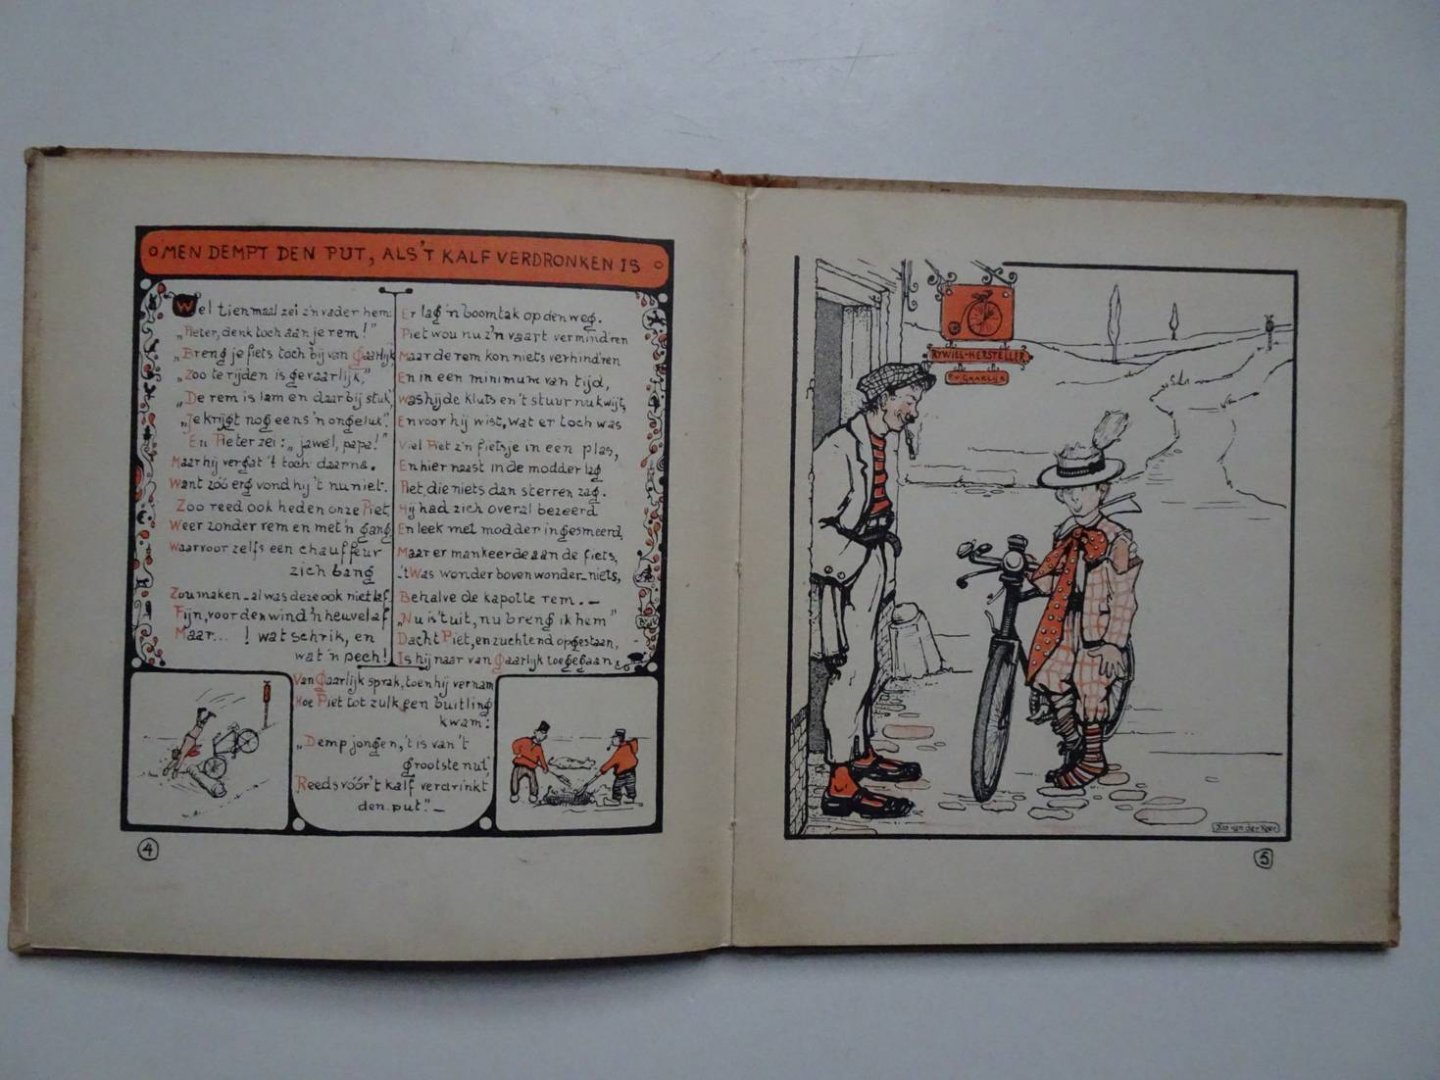 MEN DEMPT DEN PUT, ALS 'T KALF VERDRONKEN IS
Wel tienmaal zei z'n vader hem:
„Pieter, denk toch aan je rem!"
„Breng je fiets toch bij van Gaarlijk
„Zoo te rijden is gevaarlijk,"
„De rem is lam en daarbij stuk,
„Je krijgt nog eens 'n ongeluk".
En Pieter zei: „jawel, papa!"
Maar hij vergat 't toch daarna.
Want zóó erg vond hij 't nu niet.
Zoo reed ook heden onze Piet,
Weer zonder rem en met 'n gang
Waarvoor zelfs een chauffeur
zich bang
Zou maken - al was deze ook niet laf.
Fijn, voor den wind 'n heuvel af
Maar... ! wat schrik, en
wat 'n pech!
Er lag 'n boomtak op den weg.
Piet wou nu z'n vaart vermind'ren
Maar de rem kon niets verhind'ren
En in een minimum van tijd,
Was hij de kluts en 't stuur nu kwijt,
En voor hij wist, wat er toch was
Viel Piet z'n fietsje in een plas,
En hier naast in de modder lag
Piet, die niets dan sterren zag.
Hij had zich overal bezeerd
En leek met modder ingesmeerd,
Maar er mankeerde aan de fiets,
't Was wonder boven wonder - niets,
Behalve de kapotte rem. —
„Nu is 't uit, nu breng ik hem"
Dacht Piet, en zuchtend opgestaan,
Is hij naar van Gaarlijk toegegaan.
Van Gaarlijk sprak, toen hij vernam
Hoe Piet tot zulk een buitling
kwam:
„Demp jongen, 't is van 't
grootste nut,
Reeds vóór 't kalf verdrinkt
den put". —
4
RYWIEL-HERSTELLER
P. v. GAARLIJK
5